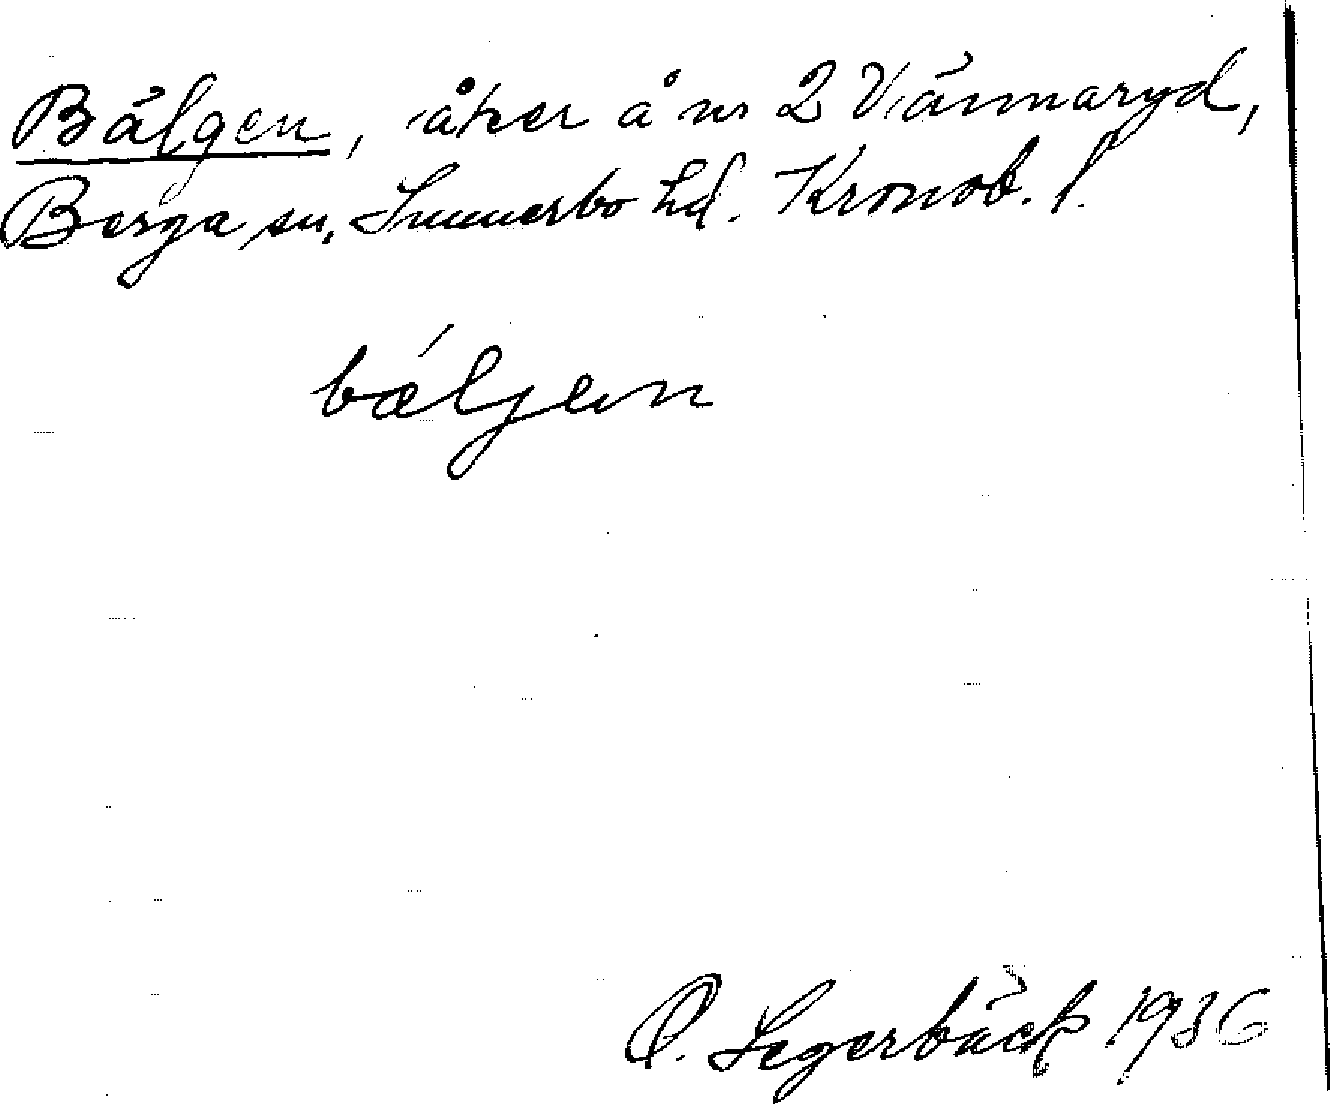 Bälgen, åker å nr 2 Vännaryd,
Berga sn, Sunnerbo hd. Kronob. l.
bǽljen
O. Segerbäck 1936